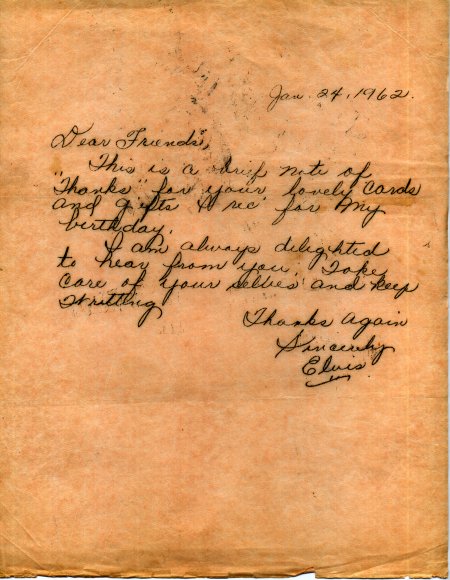 Jan. 24, 1962.
Dear Friends,
This is a brief note of
"Thanks" for your lovely cards
and gifts I rec. for my
birthday.
I am always delighted
to hear from you. Take
care of your selves and keep
writting
Thanks Again
Sincerely
Elvis